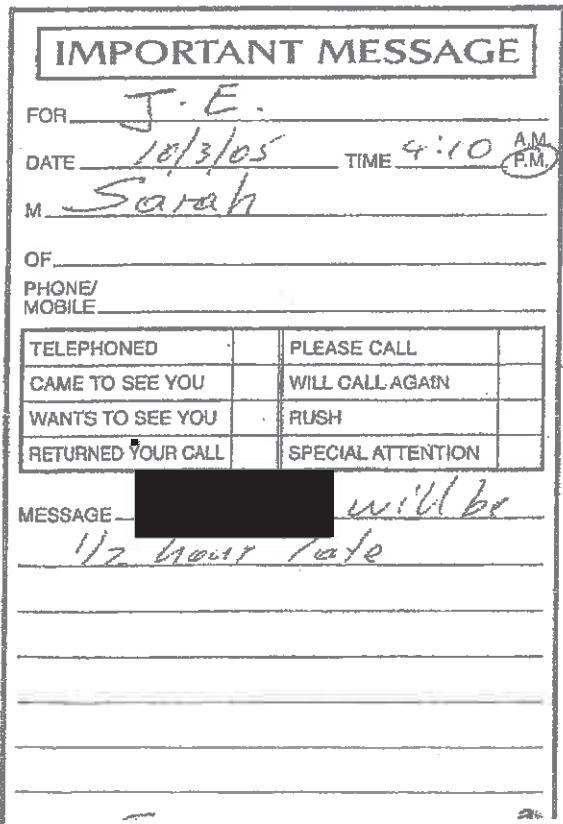 IMPORTANT MESSAGE
FOR J.E.
DATE 10/3/05 TIME 4:10 A.M. P.M.
M Sarah
OF
PHONE/
MOBILE
TELEPHONED PLEASE CALL
CAME TO SEE YOU WILL CALL AGAIN
WANTS TO SEE YOU RUSH
RETURNED YOUR CALL SPECIAL ATTENTION
MESSAGE will be
1/2 hour late